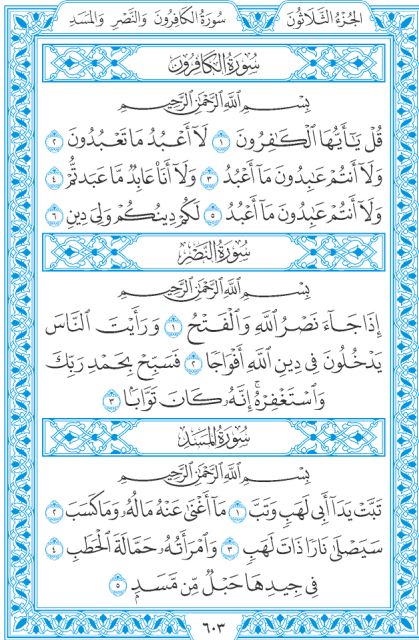 سُورَةُ الكَافِرُونَ وَالنَّصْرِ وَالمَسَدِ الجُزْءُ الثَّلَاثُونَ
سُورَةُ الكَافِرُونَ
بِسْمِ اللَّهِ الرَّحْمَٰنِ الرَّحِيمِ
قُلْ يَٰٓأَيُّهَا الْكَٰفِرُونَ ١ لَآ أَعْبُدُ مَا تَعْبُدُونَ ٢
وَلَآ أَنتُمْ عَٰبِدُونَ مَآ أَعْبُدُ ٣ وَلَآ أَنَا۠ عَابِدٌ مَّا عَبَدتُّمْ ٤
وَلَآ أَنتُمْ عَٰبِدُونَ مَآ أَعْبُدُ ٥ لَكُمْ دِينُكُمْ وَلِيَ دِينِ ٦
سُورَةُ النَّصْرِ
بِسْمِ اللَّهِ الرَّحْمَٰنِ الرَّحِيمِ
إِذَا جَآءَ نَصْرُ اللَّهِ وَالْفَتْحُ ١ وَرَأَيْتَ النَّاسَ
يَدْخُلُونَ فِي دِينِ اللَّهِ أَفْوَاجًا ٢ فَسَبِّحْ بِحَمْدِ رَبِّكَ
وَاسْتَغْفِرْهُ ۚ إِنَّهُۥ كَانَ تَوَّابًۢا ٣
سُورَةُ المَسَدِ
بِسْمِ اللَّهِ الرَّحْمَٰنِ الرَّحِيمِ
تَبَّتْ يَدَآ أَبِي لَهَبٍ وَتَبَّ ١ مَآ أَغْنَىٰ عَنْهُ مَالُهُۥ وَمَا كَسَبَ ٢
سَيَصْلَىٰ نَارًا ذَاتَ لَهَبٍ ٣ وَامْرَأَتُهُۥ حَمَّالَةَ الْحَطَبِ ٤
فِي جِيدِهَا حَبْلٌ مِّن مَّسَدٍۭ ٥
٦٠٣